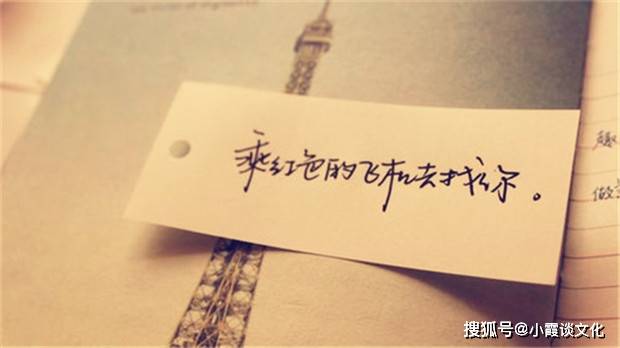 乘红色的飞机去找你。
做
搜狐号@小霞谈文化